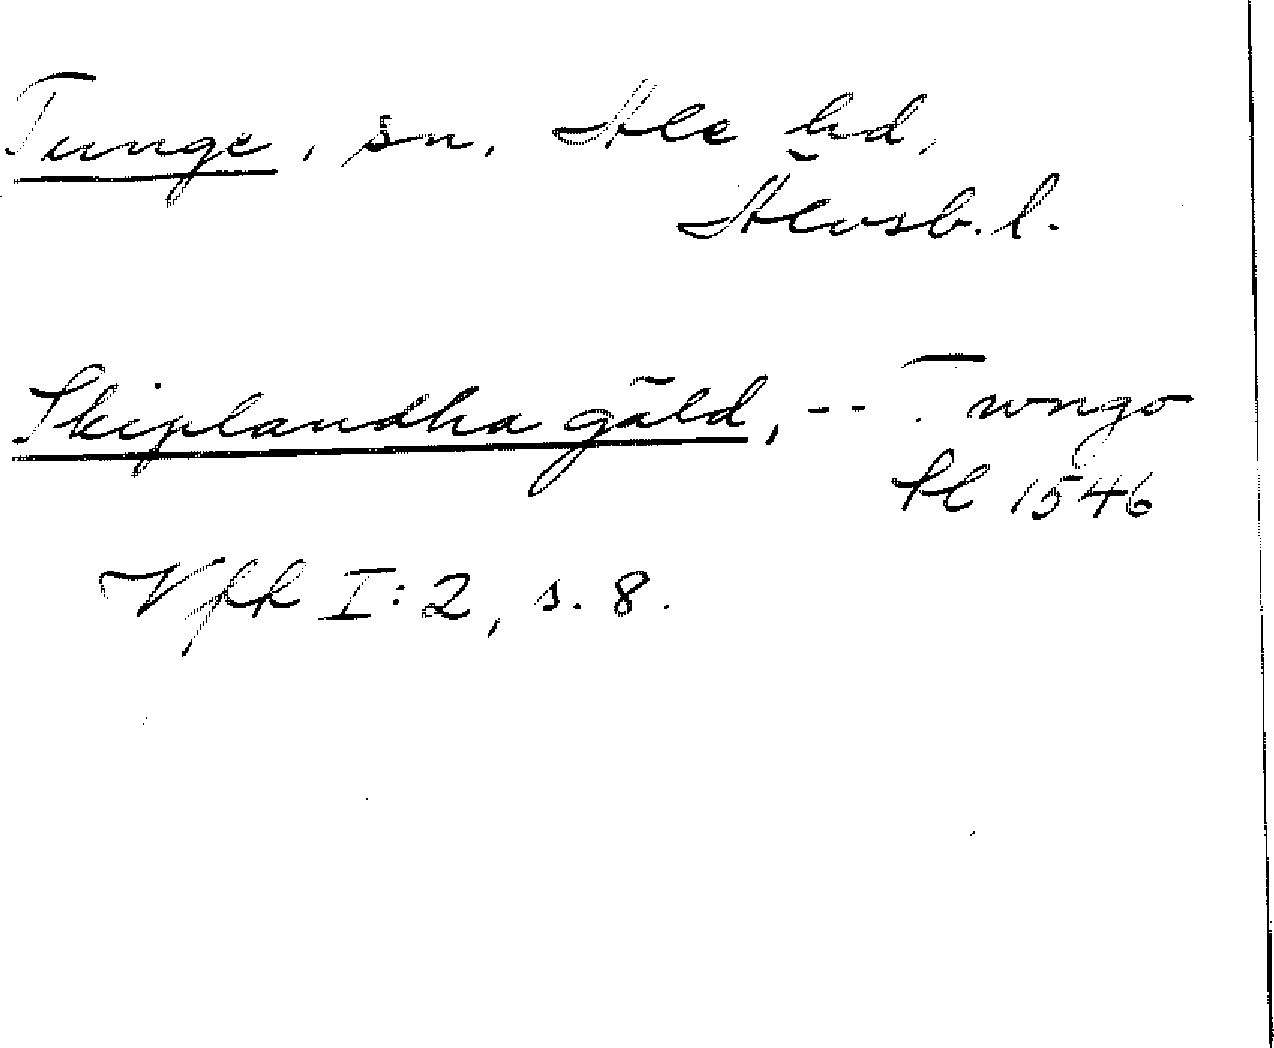 Tunge, sn, Ale hd,
Älvsb. l.
Skiplandha gäld, -- Twngo
Sl 1546
Vfk I:2, s. 8.